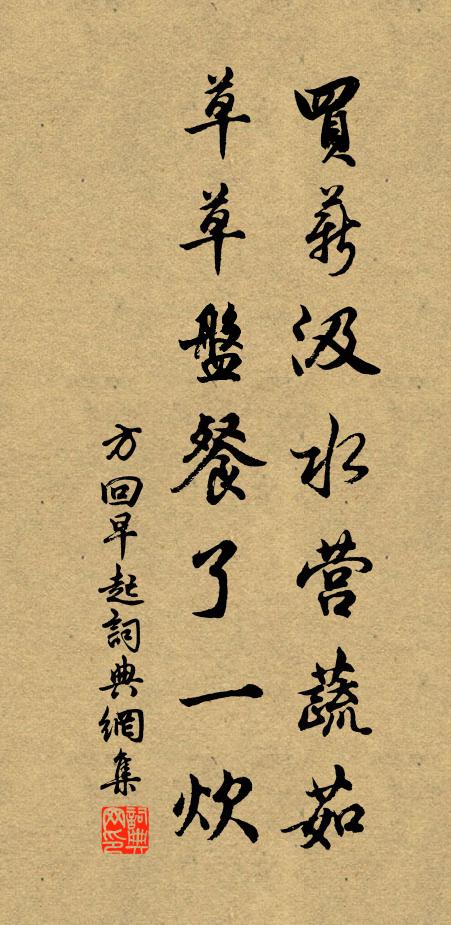 買薪汲水营蔬茹
草草盤餐了一炊
方回早起詞典網集
詞典网印